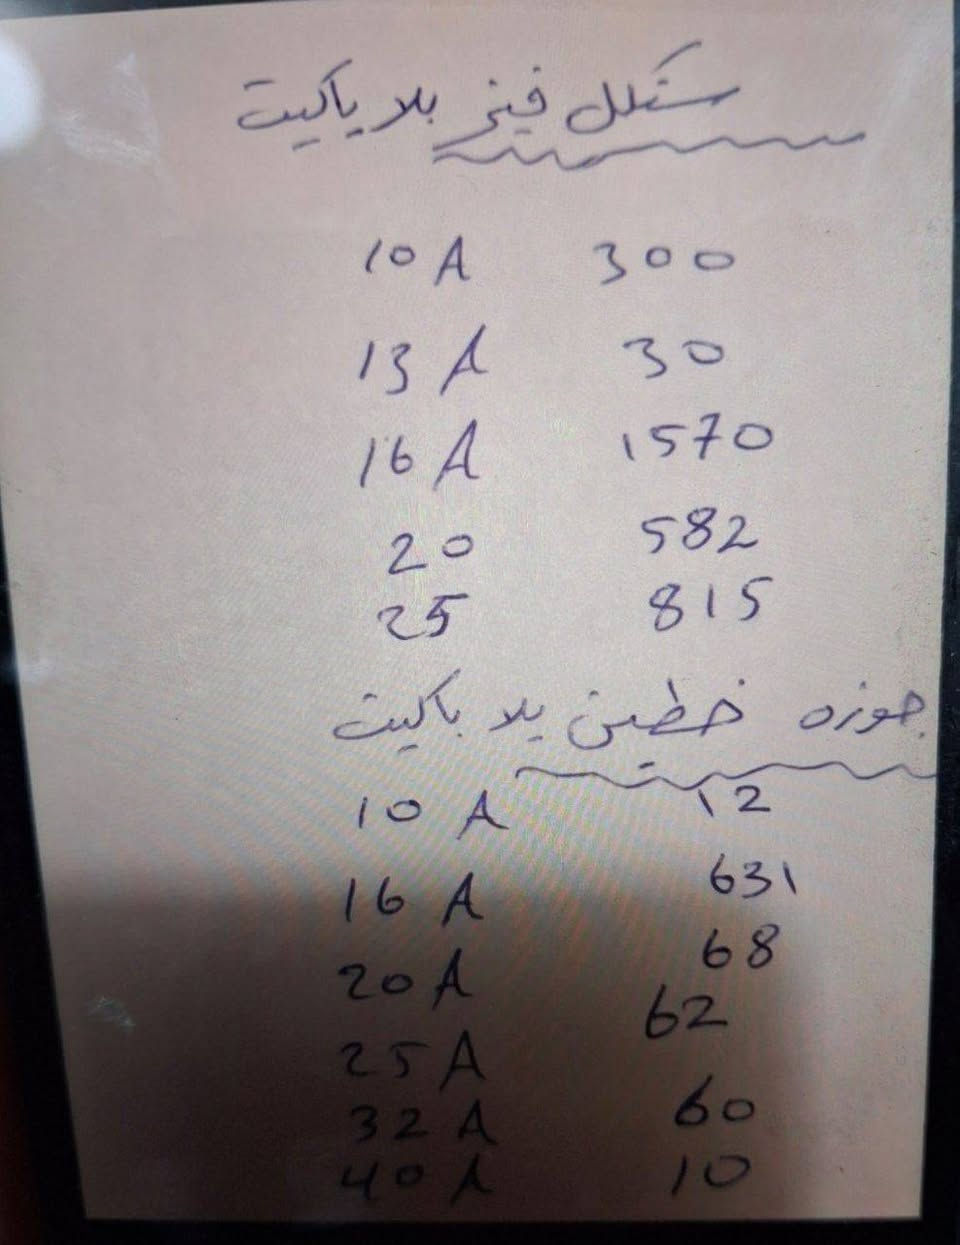 سنكل فيز بلا باكيت
10 A 300
13 A 30
16 A 1570
20 582
25 815
جوزه خطين بلا باكيت
10 A 12
16 A 631
20 A 68
25 A 62
32 A 60
40 A 10